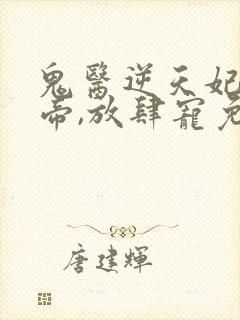 鬼醫逆天妃
帝,放肆寵
唐建輝